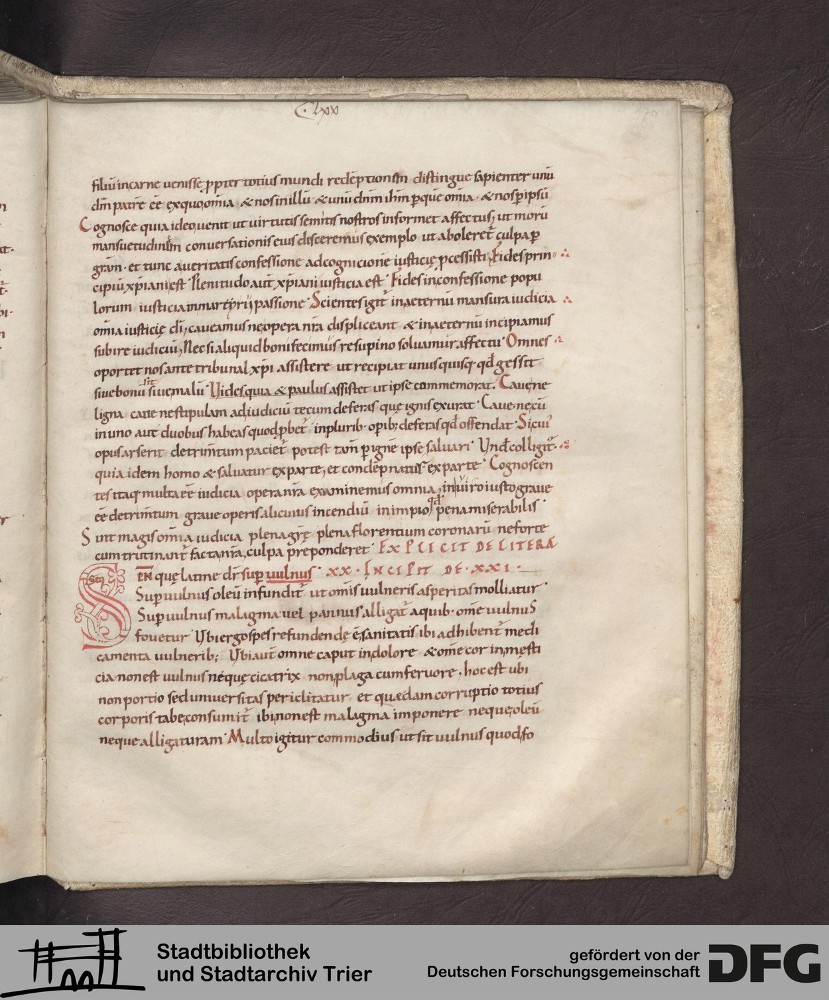 C. lxx
filiū in carne uenisse, ꝓpter totius mundi redēptionem distingue sapienter unū
dm̄ patrē eē ex quo om̄ia · & nos in illū & unū dnm̄ ihm̄ per quē om̄ia · & nos p ipsū
Cognosce quia ideo uenit ut uirtutis semitis nostros informet affectus, ut morū
mansuetudinem conuersationis eius disceremus exemplo ut aboleret̄ culpa p
gram̄ · et tunc a ueritatis confessione ad cognicionē iusticię pcessisti. Fides prin
cipiū xpiani est. Plenitudo aut̄ xpiani iusticia est. Fides in confessione popu
lorum iusticia in martyrii passione. Scientes igit̄ in aeternū mansura iudicia
om̄ia iusticię di, caueamus ne opera nr̄a displiceant & in aeternū incipiamus
subire iudiciū, Nec si aliquid boni fecimus resupino soluamur affectu. Omnes
oportet nos ante tribunal xpi assistere ut recipiat unusquisq; qd gessit
siue bonū sit siue malū. Vides quia & paulus assistet ut ipse commemorat. Caue ne
ligna caue ne stipulam ad iudiciū tecum deferas quę ignis exurat. Caue ne cū
in uno aut duobus habeas quod pbet̄ in plurib; opib; deferas qd offendat. Si cui
opus arserit detrimentum paciet̄ potest tam̄ p ignē ipse saluari. Vnde colligit̄
quia idem homo & saluatur ex parte, et condēpnatur ex parte. Cognoscen
tes itaq; multa eē iudicia opera nr̄a examinemus omnia, in uiro iusto graue
eē detrim̄tum graue operis alicuius incendiū in impio qd pena miserabilis
Sint magis om̄ia iudicia plena grę plena florentium coronarū ne forte
cum trutinant̄ facta nr̄a, culpa preponderet EXPLICIT DE LITERA
Sen
EN quę latine dr̄ sup uulnus · XX · INCIPIT DE · XXI ·
Sup uulnus oleū infundit̄ ut om̄is uulneris asperitas molliatur
Sup uulnus malagma uel pannus alligat̄ a quib· om̄e uulnus
fouetur. Vbi ergo spes refundendę ē sanitatis ibi adhibent̄ medi
camenta uulnerib; Vbi aut̄ omne caput in dolore & om̄e cor in mesti
cia non est uulnus neque cicatrix non plaga cum feruore, hoc est ubi
non portio sed uniuersitas periclitatur et quędam corruptio totius
corporis tabe consumit̄ ibi non est malagma imponere neque oleū
neque alligaturam. Multo igitur commodius ut sit uulnus quod fo
Stadtbibliothek
und Stadtarchiv Trier
gefördert von der
Deutschen Forschungsgemeinschaft
DFG